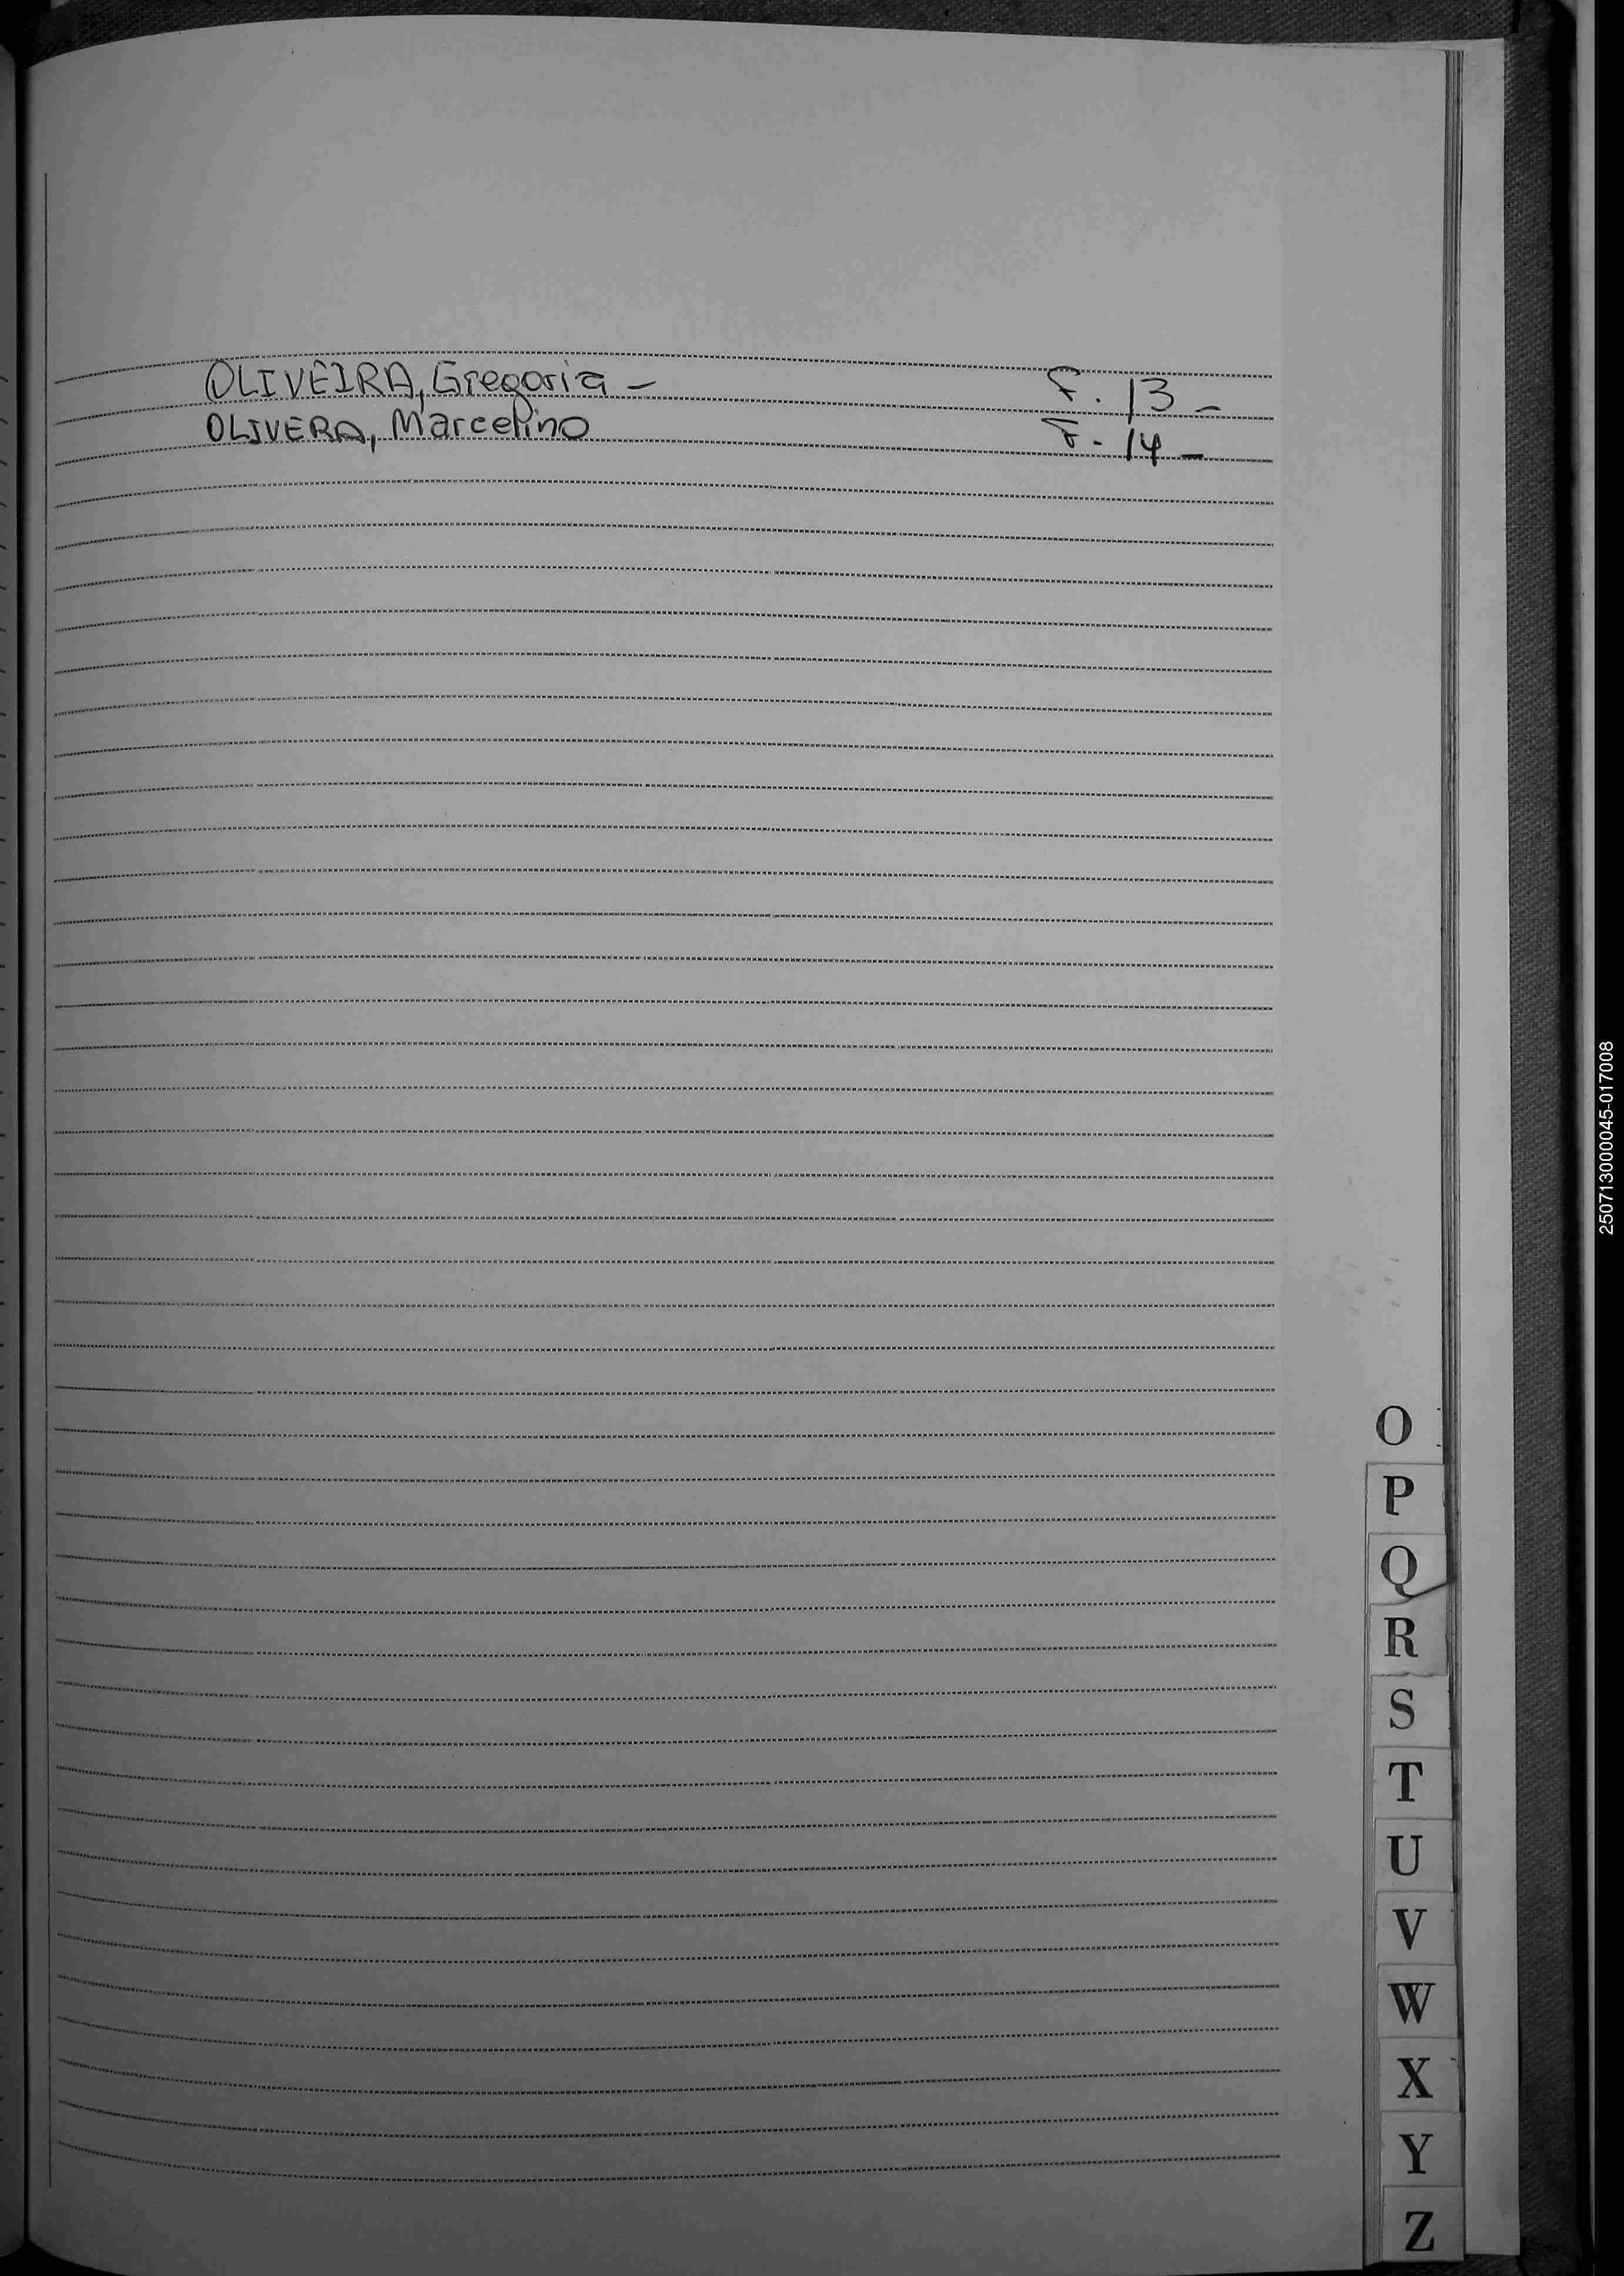 OLIVEIRA, Gregoria - F. 13 -
OLIVERA, Marcelino F. 14 -
O
P
Q
R
S
T
U
V
W
X
Y
Z
250713000045-017008